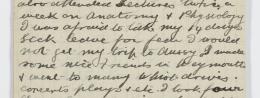 also attended Lectures twice a
week on Anatomy & Physiology
I was afraid to take my 14 days
Sick leave for fear I would
not get my trip to Aussy I made
some nice friends in Weymouth
& went to many Whist drives.
concerts plays etc. I took four